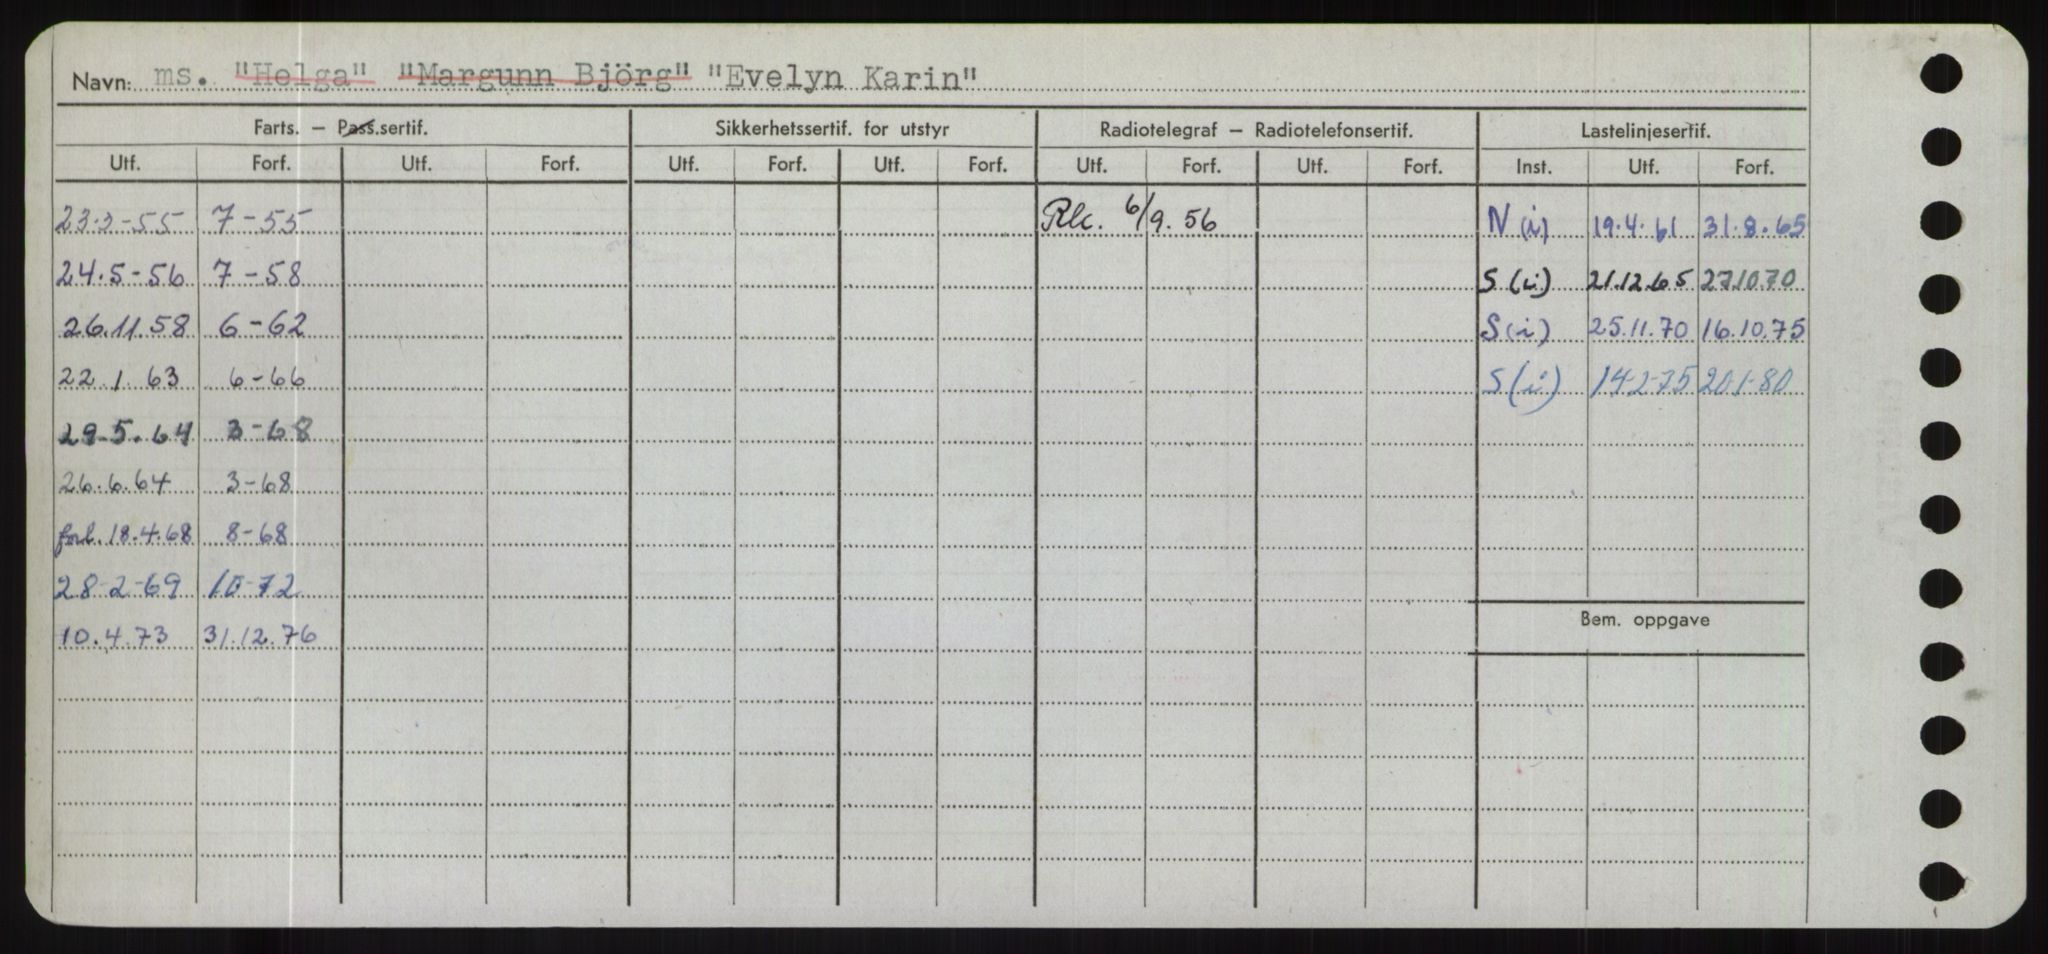 Navn: ms. "Helga" "Margunn Björg" "Evelyn Karin"
Farts. – Pass.sertif. Sikkerhetssertif. for utstyr Radiotelegraf – Radiotelefonsertif. Lastelinjesertif.
Utf. Forf. Utf. Forf. Utf. Forf. Utf. Forf. Utf. Forf. Utf. Forf. Inst. Utf. Forf.
23-3-55 7-55 Rlc. 6/9.56 N(i) 19.4.61 31.8.65
24.5-56 7-58 S(i) 21.12.65 27.10.70
26.11.58 6-62 S(i) 25.11.70 16.10.75
22.1.63 6-66 S(i) 14-2-75 20-1-80
29.5.64 3-68
26.6.64 3-68
forl. 18.4.68 8-68
28-2-69 10-72
Bem. oppgave
10.4.73 31.12.76